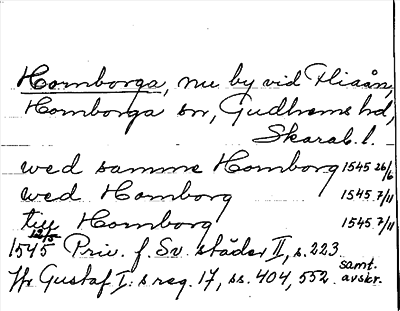 Homborga, nu by vid Fliaån,
Homborga sn, Gudhems hd,
Skarab. l.
wed samme Homborg 1545 26/6
wed Homborg 1545 7/11
till Homborg 1545 7/11
12/5
1545 Priv. f. Sv. städer II, s. 223
Hr Gustaf I:s reg. 17, ss. 404, 552 samt. avskr.